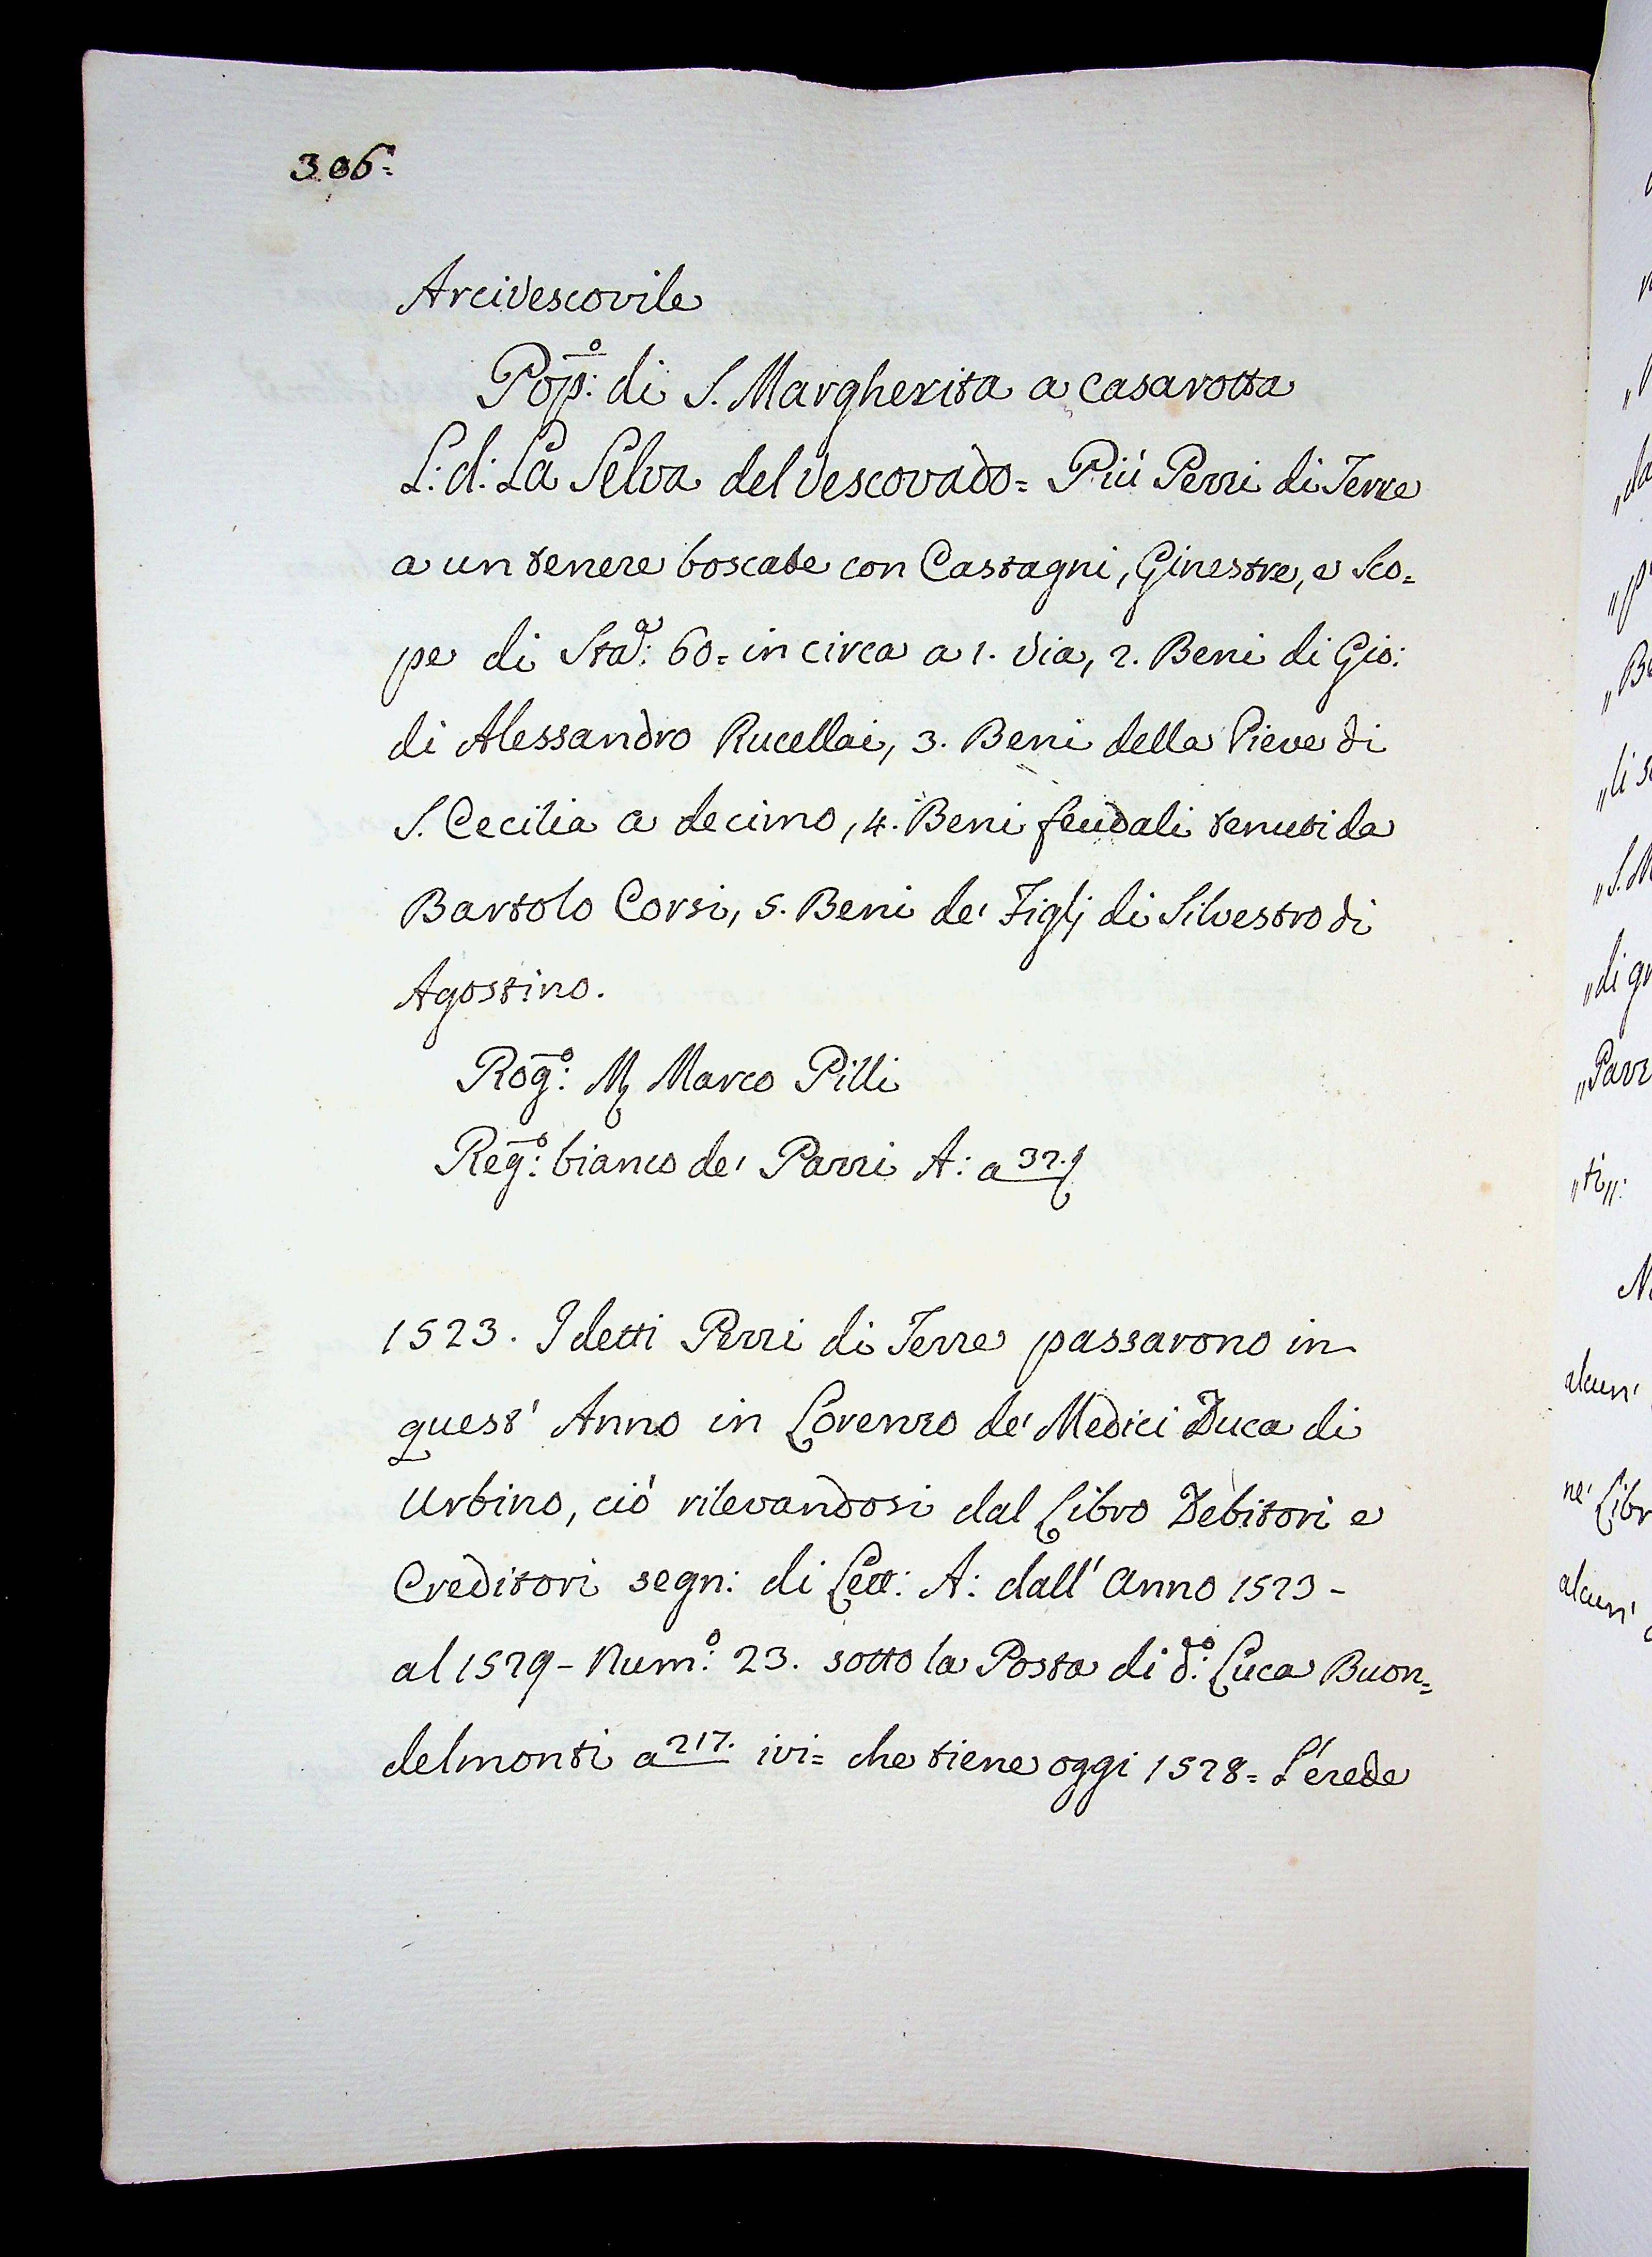 306=
Arcivescovile
Pop:º di S. Margherita a Casarotta
L: d: La Selva del Vescovado= Più Pezzi di Terre
a un tenere boscate con Castagni, Ginestre, e Sco=
pe di Sta:ª 60= in circa a 1. Via, 2. Beni di Gio:
di Alessandro Rucellai, 3. Beni della Pieve di
S. Cecilia a decimo, 4. Beni feudali tenuti da
Bartolo Corsi, 5. Beni de' Figlj di Silvestro di
Agostino.
Rog:º M Marco Pilli
Reg:º bianco de' Pazzi A: a 32.
1523. I detti Pezzi di Terre passarono in
quest' Anno in Lorenzo de' Medici Duca di
Urbino, ciò rilevandosi dal Libro Debitori e
Creditori segn: di Lett: A: dall' Anno 1523-
al 1529- Num:º 23. sotto la Posta di d:º Luca Buon=
delmonti a 217. ivi= che tiene oggi 1528= L'erede
alcun'
ne' Libr
alcun'